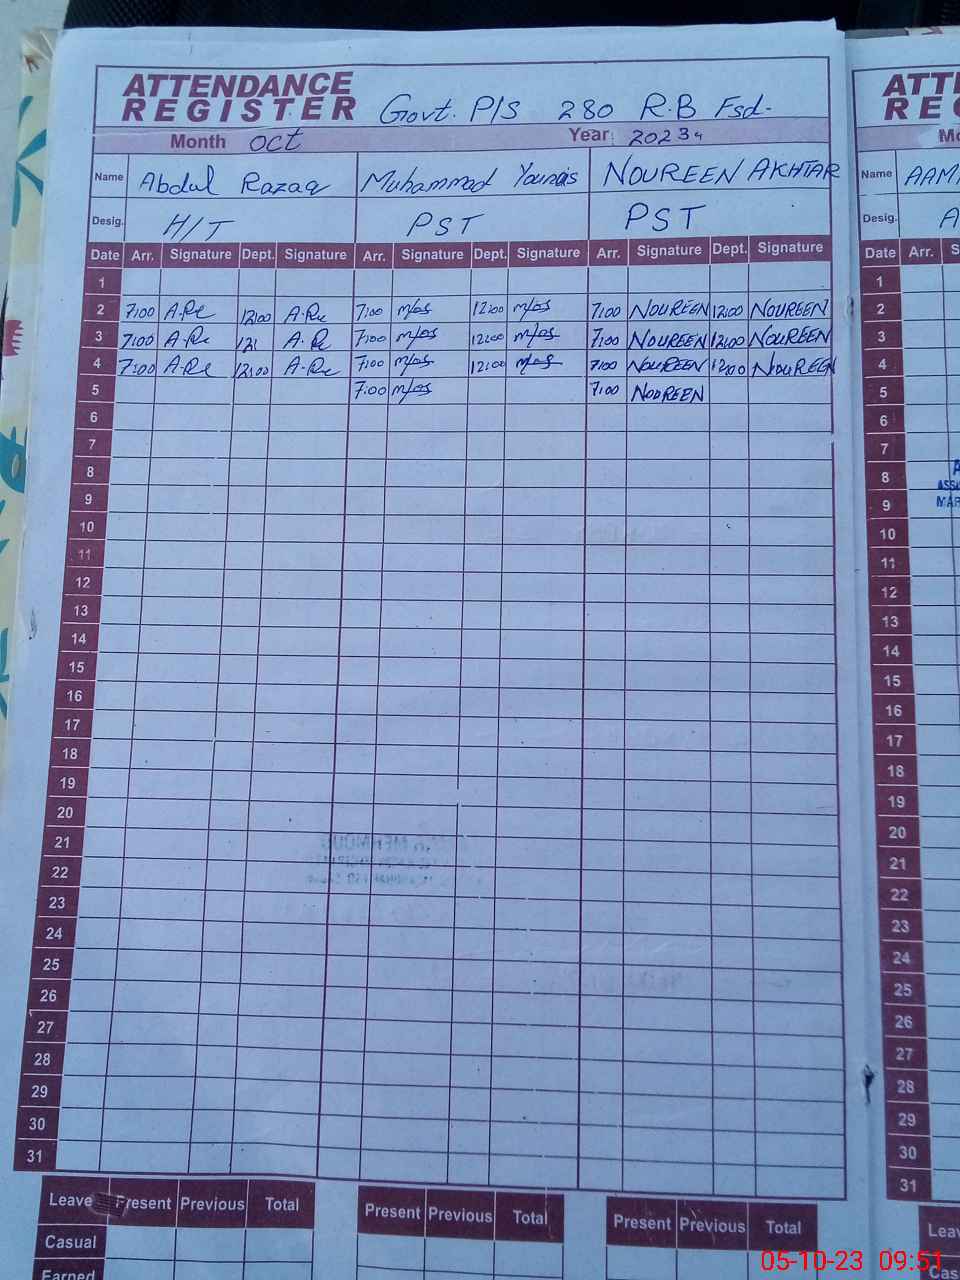 ATTENDANCE REGISTER Govt. P/S 280 R.B Fsd. ATTEN
REG
Month Oct Year 2023
Name Abdul Razaq Muhammad Younas NOUREEN AKHTAR Name AAM
Desig. H/T PST PST Desig. A
Date Arr. Signature Dept. Signature Arr. Signature Dept. Signature Arr. Signature Dept. Signature Date Arr. S
1 1
2 7:00 A.Re 12:00 A.Re 7:00 12:00 7:00 NOUREEN 12:00 NOUREEN 2
3 7:00 A.Re 7:00 12:00 7:00 NOUREEN 12:00 NOUREEN 3
4 7:00 A.Re 12:00 A.Re 7:00 12:00 7:00 NOUREEN 12:00 NOUREEN 4
5 7:00 7:00 NOUREEN 5
6 6
7 7
8 8
9 9
10 10
11 11
12 12
13 13
14 14
15 15
16 16
17 17
18 18
19 19
20 20
21 21
22 22
23 23
24 24
25 25
26 26
27 27
28 28
29 29
30 30
31 31
Leave Present Previous Total Present Previous Total Present Previous Total Leav
Casual Cas
Earned
05-10-23 09:51